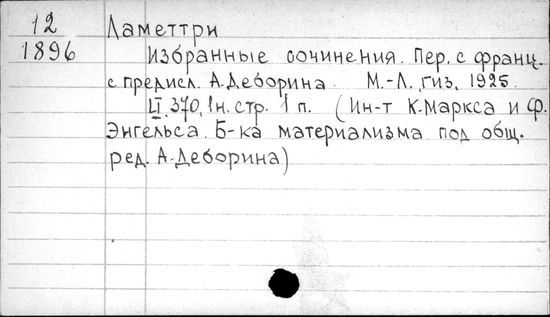 12
1896
Ламеттри
Избранные сочинения. Пер. с франц.
с предисл. А.Деборина. М.-Л., гиз, 1925.
LI, 370, 1н. стр. 1 п. (Ин-т К.Маркса и Ф.
Энгельса. Б-ка материализма под общ.
ред. А.Деборина)